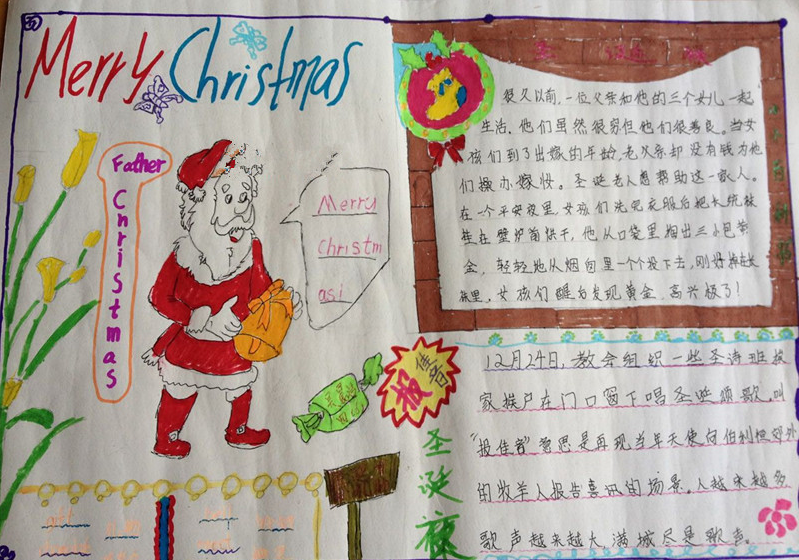 Merry Christmas
Father
Christmas
Merry
Christm
asi
很久以前,一位父亲和他的三个女儿一起
生活,他们虽然很穷但他们很善良。当女
孩们到了出嫁的年龄,老父亲却没有钱为他
们操办嫁妆。圣诞老人想帮助这一家人。
在一个平安夜里,女孩们洗完衣服后把长统袜
挂在壁炉前烘干,他从口袋里掏出三小包黄
金,轻轻地从烟囱里一个个投下去,刚好掉在长
袜里。女孩们醒后发现黄金,高兴极了!
报佳音
圣诞夜
12月24日,教会组织一些圣诗班挨
家挨户在门口窗下唱圣诞颂歌,叫
“报佳音”意思是再现当年天使向伯利恒郊外
的牧羊人报告喜讯的场景。人越来越多
歌声越来越大,满城尽是歌声。